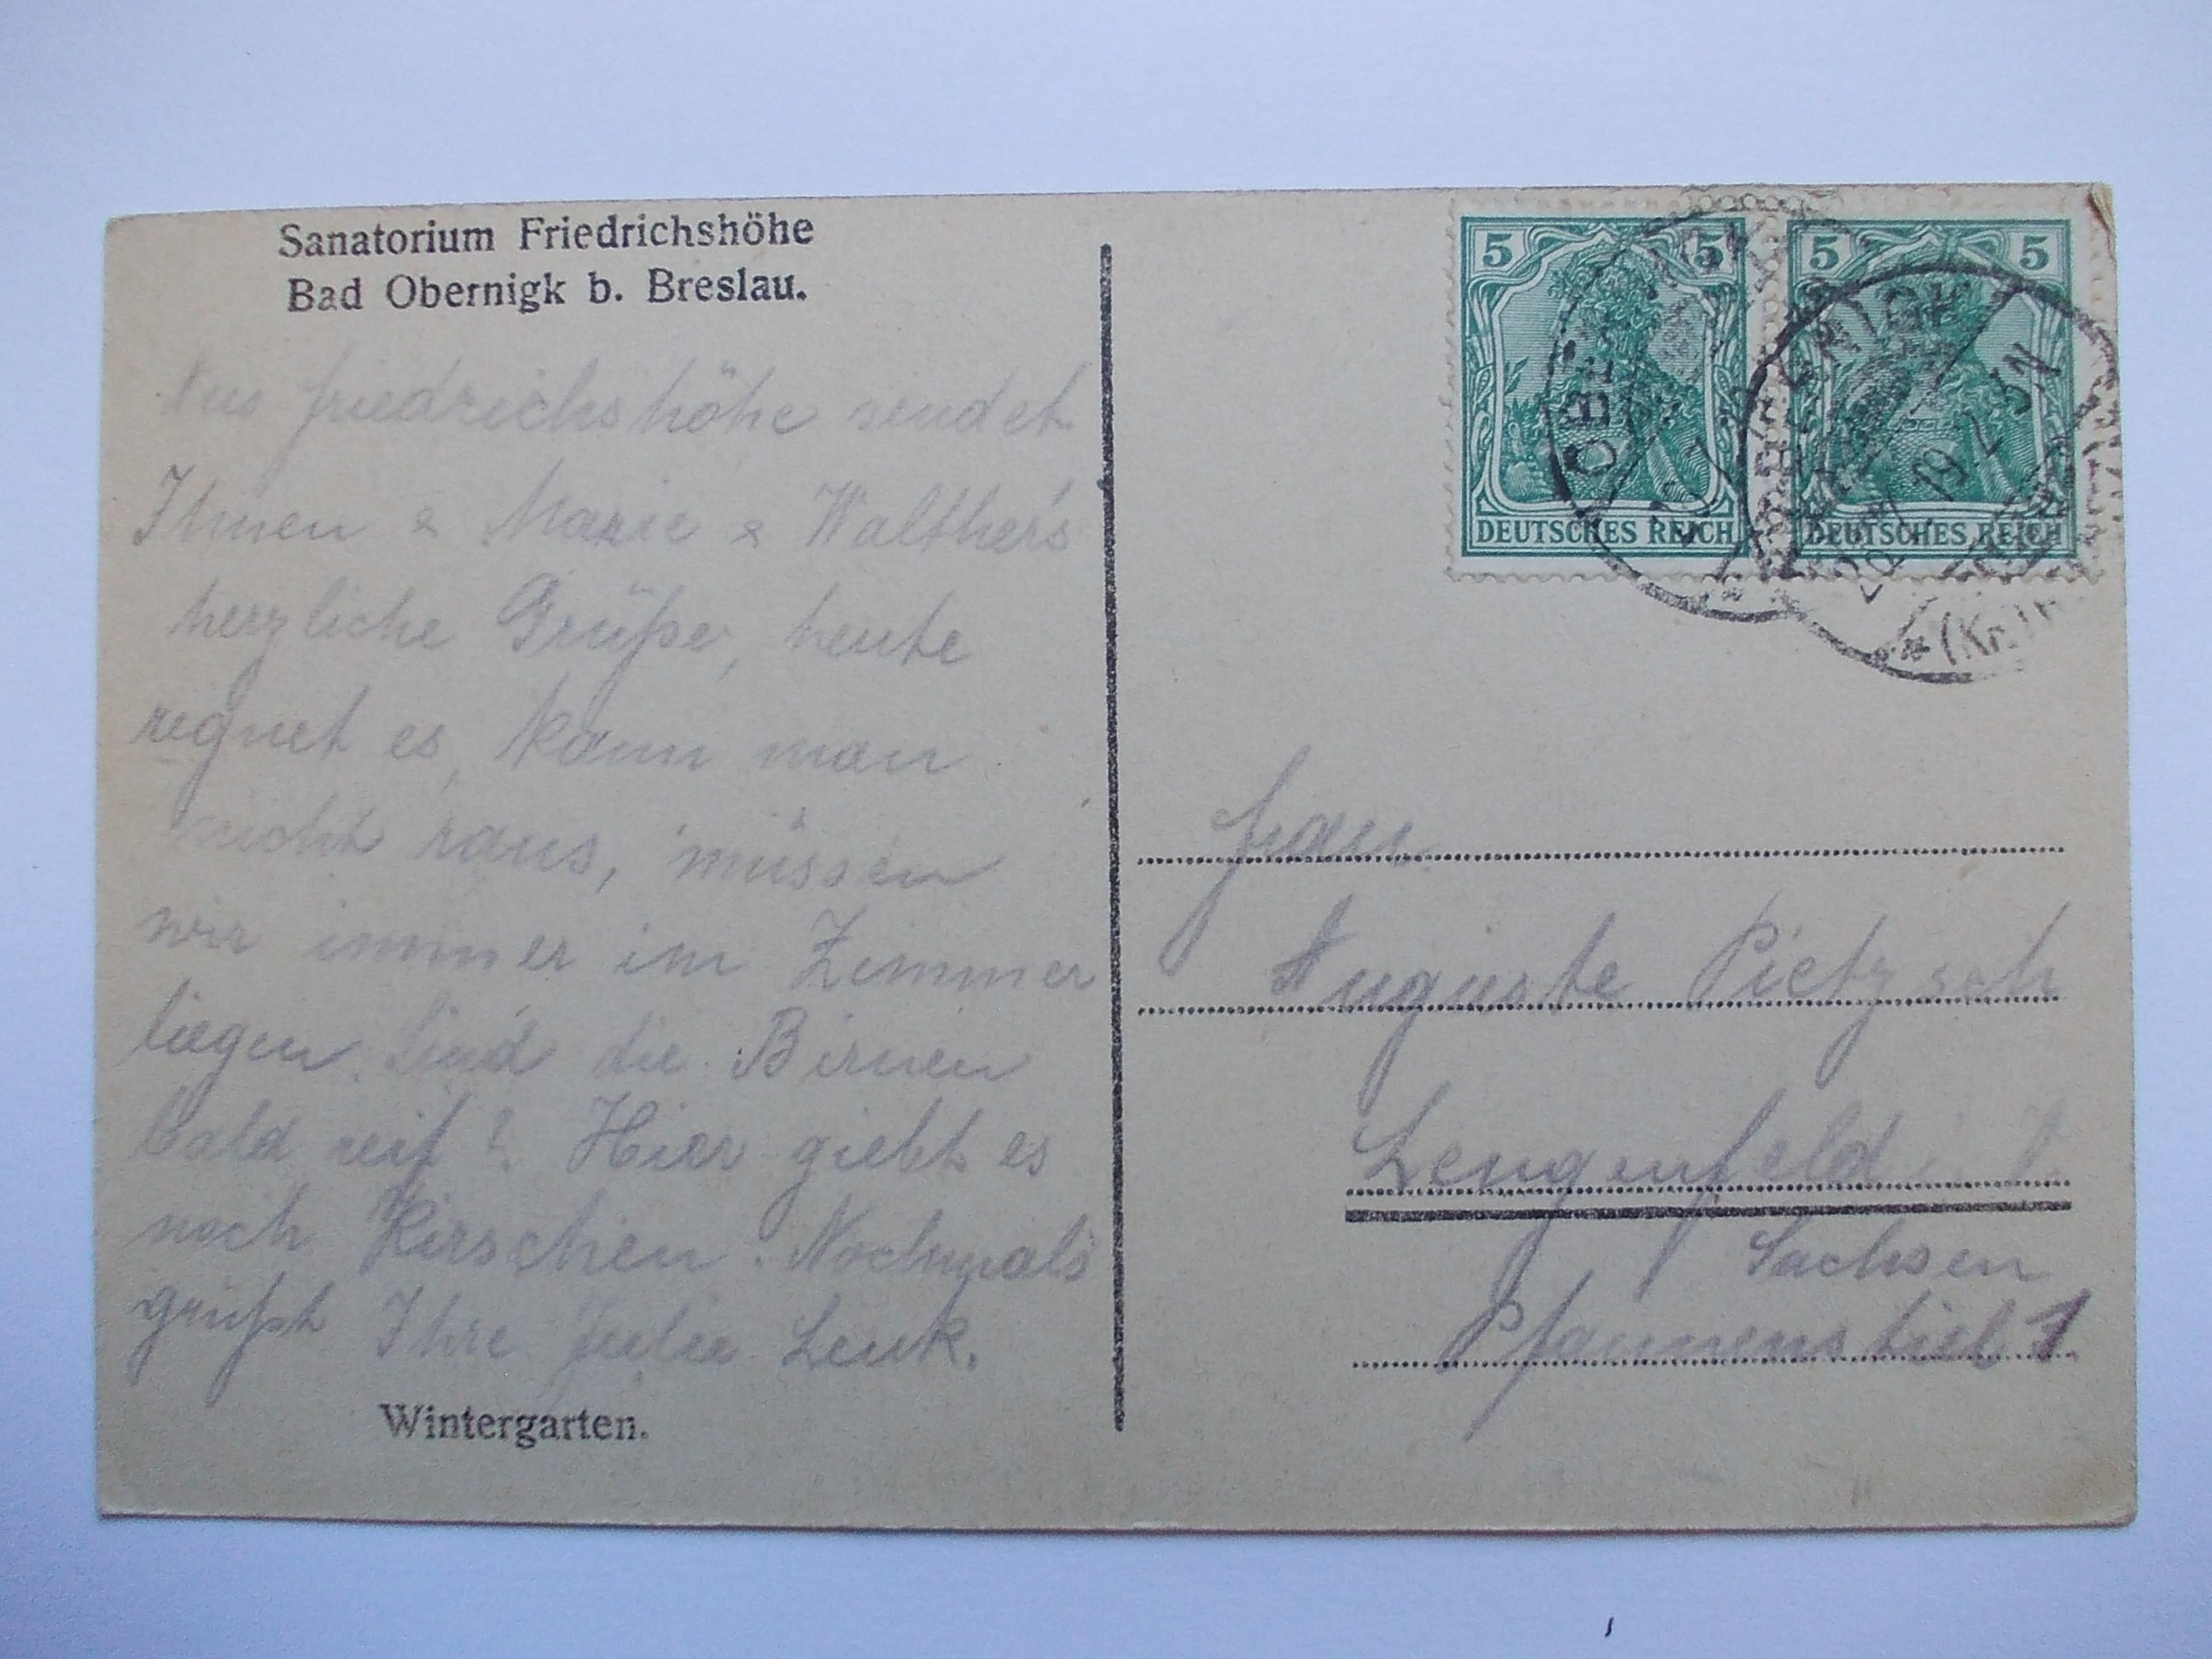 Sanatorium Friedrichshöhe
Bad Obernigk b. Breslau.
Aus Friedrichshöhe sendet
Ihnen & Marie & Walther's
herzliche Grüße, heute
regnet es, kann man
nicht raus, müssen
wir immer im Zimmer
liegen. Sind die Birnen
bald reif? Hier giebt es
noch Kirschen. Nochmals
grüßt Ihre Julie Lenk.
Wintergarten.
5 5
DEUTSCHES REICH
5 5
DEUTSCHES REICH
OBERNIGK
19 2-3N
Frau
Auguste Pietzsch
Lengenfeld i. V.
Sachsen
Pfannenstiel 1